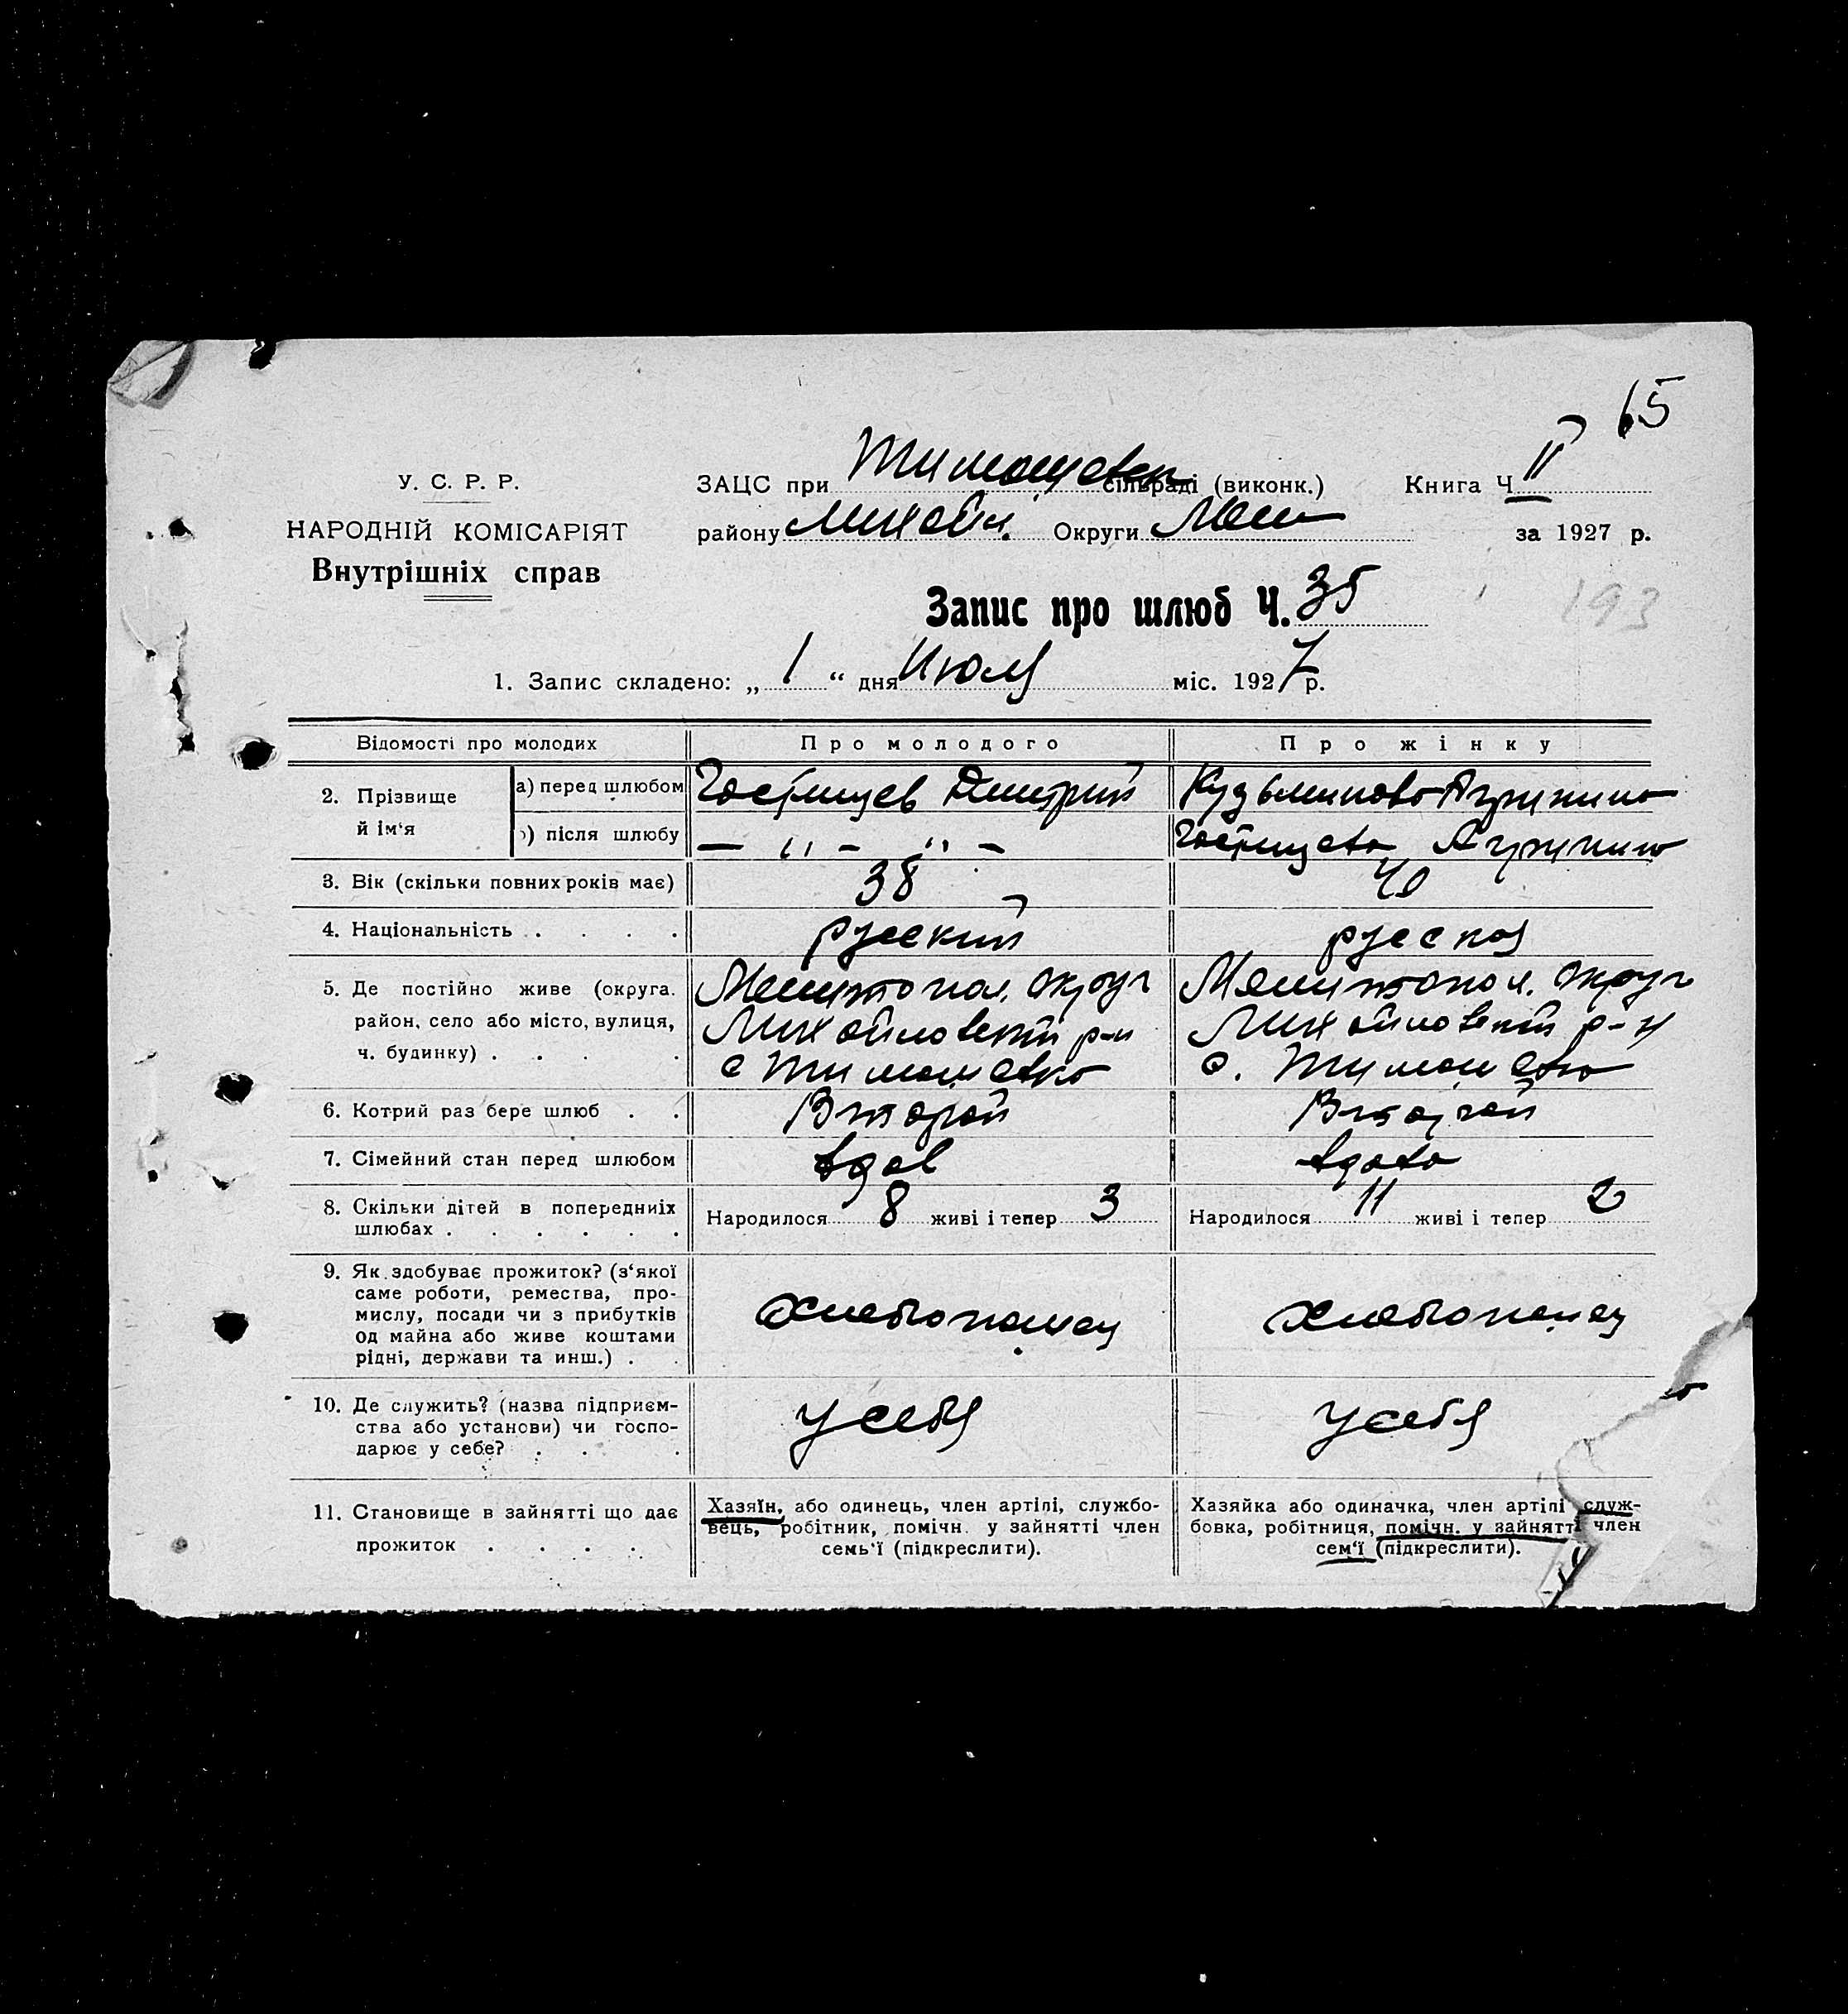 65
У. С. Р. Р.
НАРОДНІЙ КОМІСАРІЯТ
Внутрішніх справ
ЗАЦС при Тимошевск сільраді (виконк.) Книга Ч. II
району Михайл. Округи Мел за 1927 р.
193
Запис про шлюб Ч. 35
1. Запис складено: „ 1 “ дня Июля міс. 1927 р.
Відомості про молодих Про молодого Про жінку
2. Прізвище й ім‘я а) перед шлюбом Гостищев Дмитрий Кузьминова Агрипина
б) після шлюбу — „ — „ — Гостищева Агрипина
3. Вік (скільки повних років має) 38 40
4. Національність . . . . русский русская
5. Де постійно живе (округа. Мелитопол. округ Мелитопол. округ
район, село або місто, вулиця, Михайловский р-н Михайловский р-н
ч. будинку) . . . . с Тимошевка с. Тимошевка
6. Котрий раз бере шлюб . . Второй Второй
7. Сімейний стан перед шлюбом вдов вдова
8. Скільки дітей в попередниіх Народилося 8 живі і тепер 3 Народилося 11 живі і тепер 2
шлюбах . . . . . .
9. Як здобуває прожиток? (з‘якої
саме роботи, ремества, про-
мислу, посади чи з прибутків хлебопашец хлебопашец
од майна або живе коштами
рідні, держави та инш.) . .
10. Де служить? (назва підприєм-
ства або установи) чи госпо- у себя у себя
дарює у себе? . . .
11. Становище в зайнятті що дає Хазяїн, або одинець, член артілі, службо- Хазяйка або одиначка, член артілі служ-
прожиток . . . . вець, робітник, помічн. у зайнятті член бовка, робітниця, помічн. у зайнятті член
семь‘ї (підкреслити). сем‘ї (підкреслити).